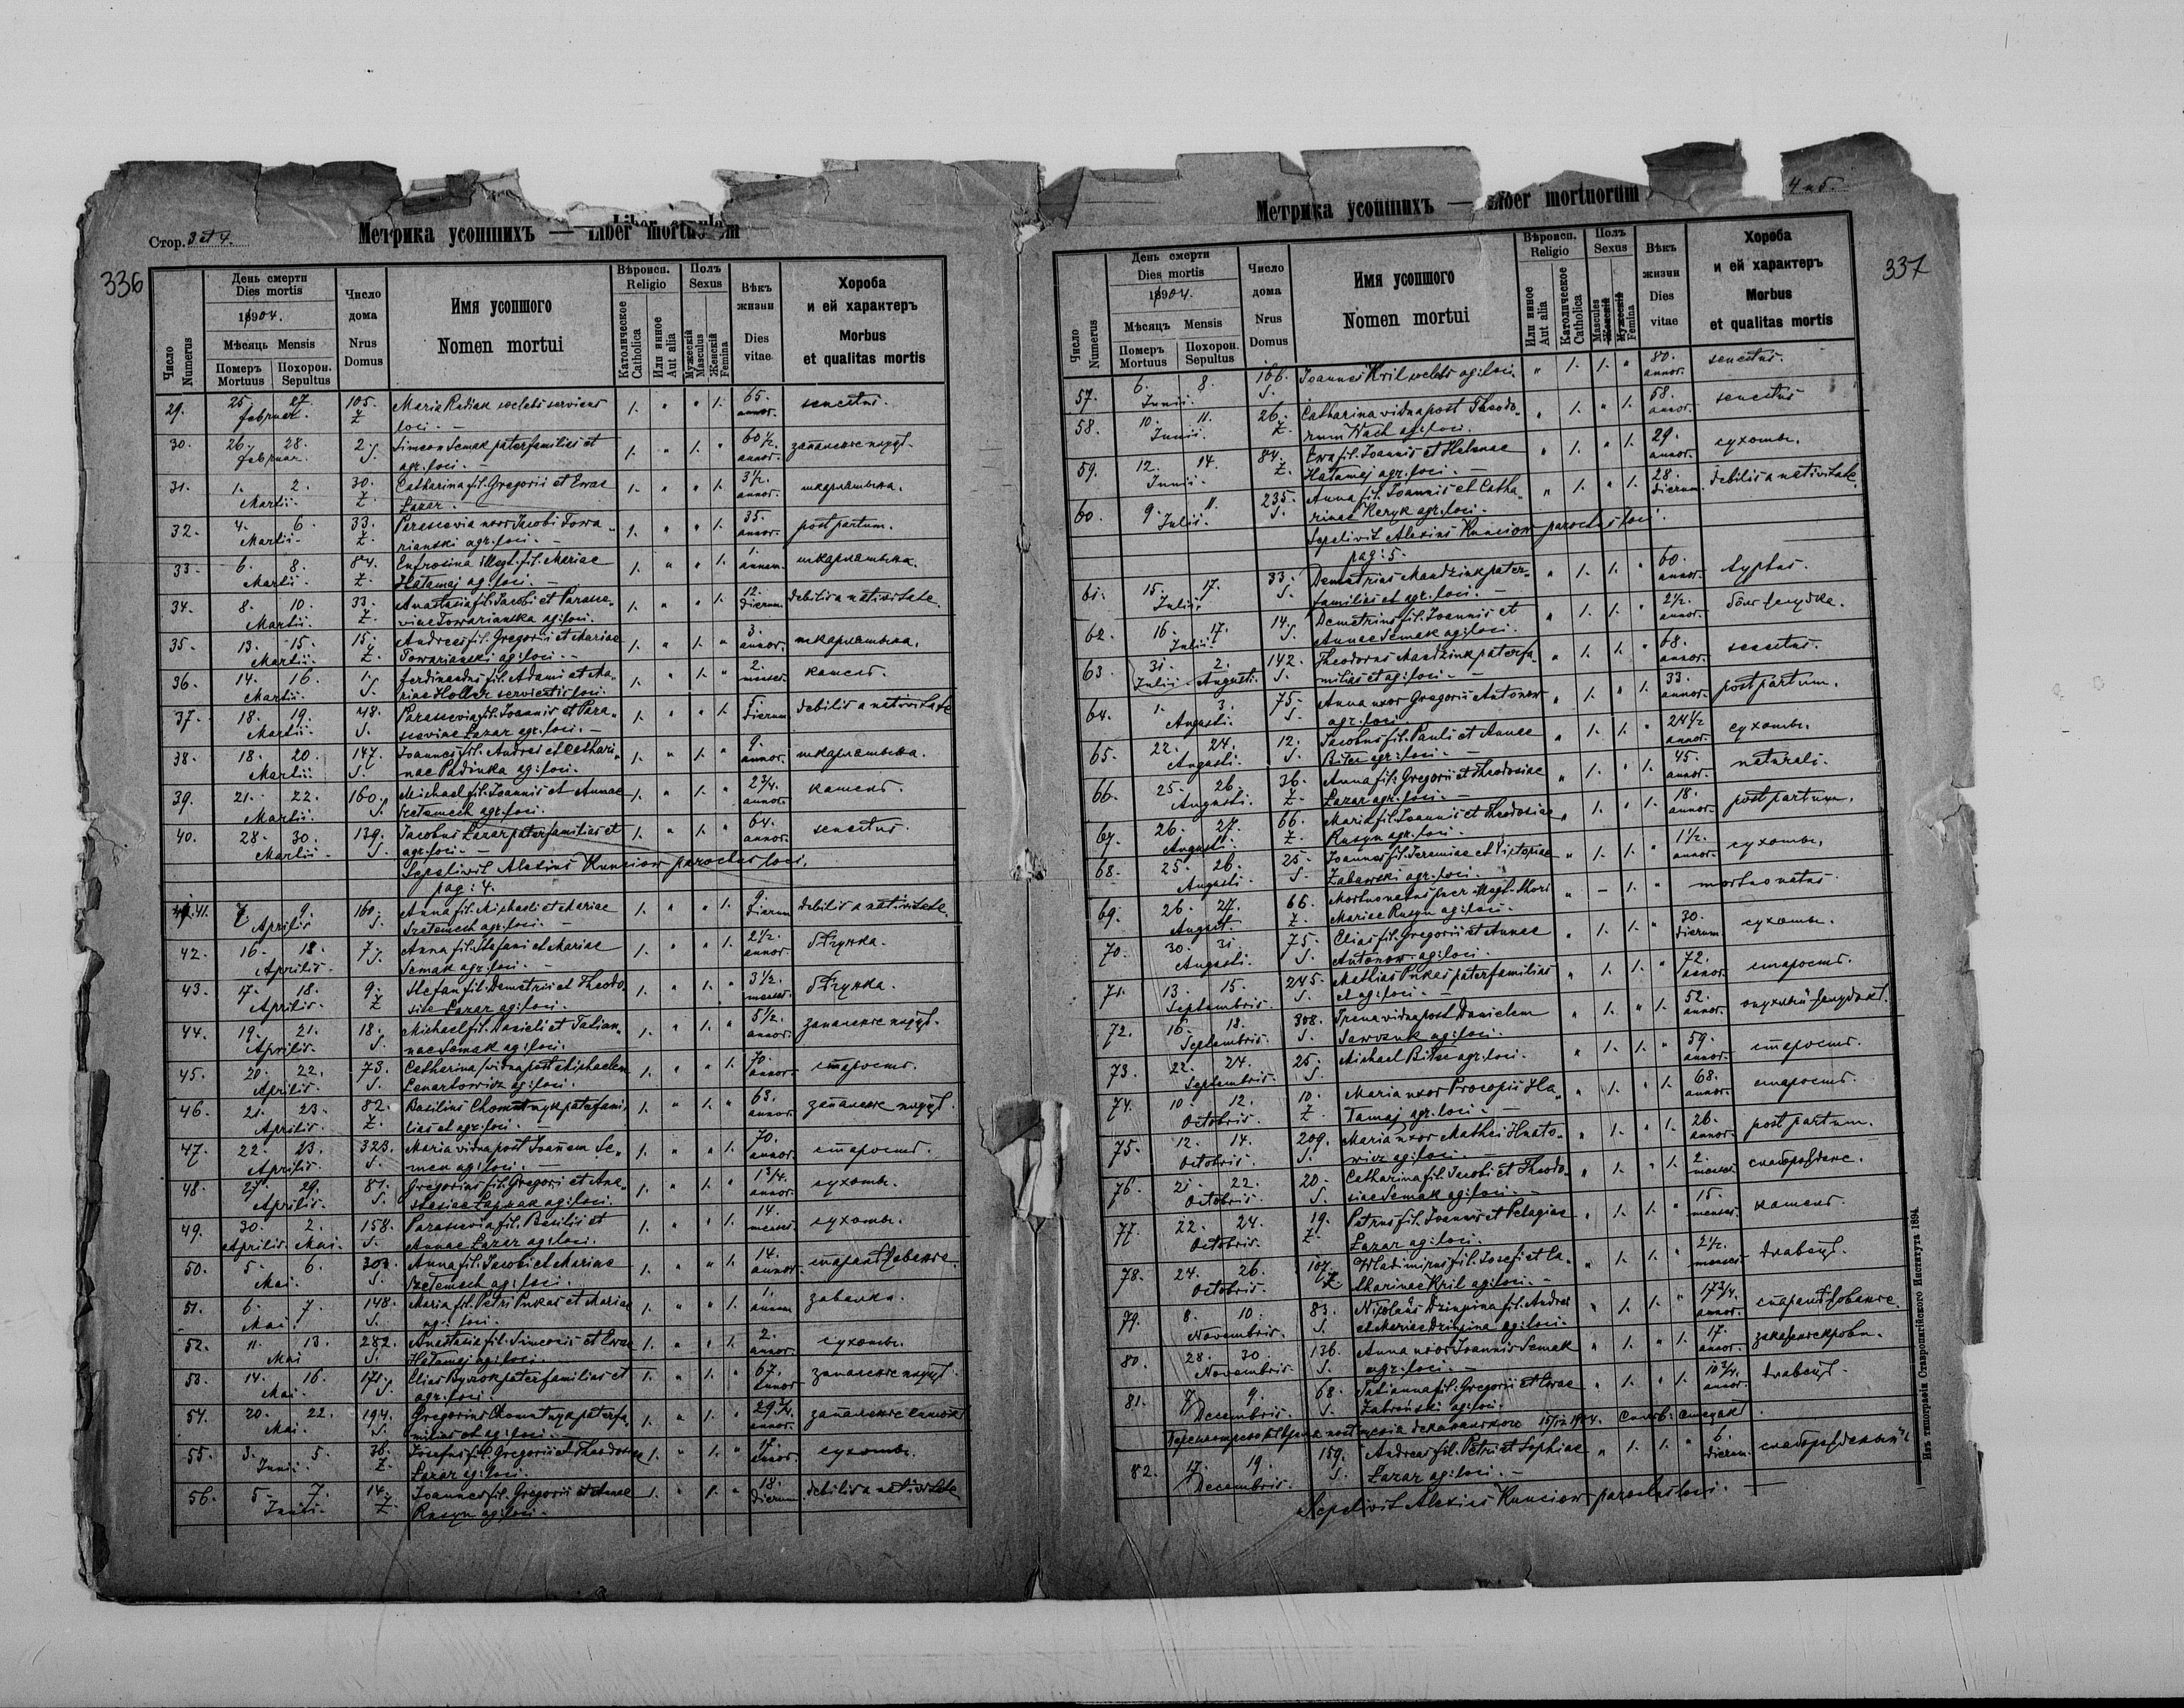 Стор. 3 et 4.
Метрика усопшихъ — Liber mortuorum
336
Число Numerus
День смерти Dies mortis 1904.
Мѣсяць Mensis
Померъ Mortuus
Похорон. Sepultus
Число дома Nrus Domus
Имя усопшого Nomen mortui
Вѣроисп. Religio
Католическое Catholica
Или инное Aut alia
Полъ Sexus
Мужескій Masculus
Женскій Femina
Вѣкъ жизни Dies vitae
Хороба и ей характеръ Morbus et qualitas mortis
29. 25. 27. 105. Maria Rudiak coelebs serviens 1. " " 1. 65. senectus.
Februar. Z loci. — annor.
30. 26. 28. 2. Simeon Semak paterfamilias et 1. " 1. " 60 1/2
Februar. S. agr. loci. — annor.
31. 1. 2. 30. Catharina fil. Gregorii et Evae 1. " " 1. 3 1/2. шкарлатына.
Martii. Z. Łazar. annor.
32. 4. 6. 33. Parascevia uxor Jacobi Towa- 1. " " 1. 35. post partum.
Martii. Z. rianski agr. loci. — annor.
33. 6. 8. 84. Eufrosina illegt. fil. Mariae 1. " " 1. 1. шкарлатына.
Martii. Z. Hałamaj ag. loci. — annum
34. 8. 10. 33. Anastasia fil. Jacobi et Parasce- 1. " " 1. 12. debilis a nativitate.
Martii. Z. viae Towarianska ag. loci. dierum
35. 13. 15. 15. Andreas fil. Gregorii et Mariae 1. " 1. " 3. шкарлатына.
Martii. Z. Towarianski ag. loci. — annor.
36. 14. 16. 1. Ferdinandus fil. Adami et Ma- 1. " 1. " 2. кашель.
Martii. S. riae Holler servientis loci. menses
37. 18. 19. 48. Parascevia fil. Joannis et Para- 1. " " 1. 5. debilis a nativitate
Martii. S. sceviae Łazar agr. loci. — dierum
38. 18. 20. 147. Joannes fil. Andrei et Cathari- 1. " 1. " 9. шкарлатына.
Martii. S. nae Padinka ag. loci. annor.
39. 21. 22. 160. Michael fil. Joannis et Annae 1. " 1. " 2 3/4. кашель.
Martii. S. agr. loci. annor.
40. 28. 30. 139. Jacobus Łazar paterfamilias et 1. " 1. " 64. senectus.
Martii. S. agr. loci. — annor.
Sepelivit Alexius Kunciow parochus loci.
pag: 4.
41. 7. 9. 160. Anna fil. Michaeli et Mariae 1. " " 1. 9. debilis a nativitate.
Aprilis S. agr. loci. — dierum
42. 16. 18. 7. Anna fil. Stefani et Mariae 1. " " 1. 2 1/2. бѣгунка.
Aprilis. S. Semak agr. loci. — annor.
43. 17. 18. 9. Stefan fil. Demetrii et Theodo- 1. " 1. " 3 1/2. бѣгунка.
Aprilis. Z siae Łazar ag. loci. menses.
44. 19. 21. 18. Michael fil. Danieli et Tatian- 1. " 1. " 5 1/2.
Aprilis. S. nae Semak ag. loci. annor.
45. 20. 22. 73. Catharina vidua post Michaelem 1. " " 1. 70. старость.
Aprilis. S. Lenartowicz ag. loci. annor.
46. 21. 23. 82. Basilius Chomutnyk paterfami- 1. " 1. " 63.
Aprilis. Z. lias et agr. loci. annor.
47. 22. 23. 323. Maria vidua post Joannem Se- 1. " " 1. 70. старость.
Aprilis. S. men ag. loci. — annor.
48. 27. 29. 81. Gregorius fil. Gregorii et Ana- 1. " 1. " 1 3/4. сухоты.
Aprilis. S. stasiae ag. loci. annor.
49. 30. 2. 158. Parascevia fil. Basilii et 1. " " 1. 14. сухоты.
Aprilis. Mai. S. Annae Łazar ag. loci. menses.
50. 5. 6. 303. Anna fil. Jacobi et Mariae 1. " " 1. 14.
Mai. S. ag. loci. annor.
51. 6. 7. 148. Maria fil. Petri Pukas et Mariae 1. " " 1. 1. завалка.
Mai. S. ag. loci. annum
52. 11. 13. 282. Anastasia fil. Simeonis et Evae 1. " " 1. 2. сухоты.
Mai S. Hałamaj ag. loci. annor.
53. 14. 16. 171. Elias paterfamilias et 1. " 1. " 67.
Mai. S. agr. loci. annor
54. 20. 22. 194. Gregorius Chomutnyk paterfa- 1. " 1. " 29 3/4.
Mai. S. milias et ag. loci. — annor.
55. 3. 5. 36. Josefus fil. Gregorii et Theodosiae 1. " 1. " 17. сухоты.
Junii. Z. Łazar ag. loci. annor.
56. 5. 7. 14. Joannes fil. Gregorii et Annae 1. " 1. " 18. debilis a nativitate
Junii. Z. Rusyn ag. loci. dierum.
4 и 5.
Метрика усопшихъ — Liber mortuorum
337
Число Numerus
День смерти Dies mortis 1904.
Мѣсяцъ Mensis
Померъ Mortuus
Похорон. Sepultus
Число дома Nrus Domus
Имя усопшого Nomen mortui
Вѣроисп. Religio
Или инное Aut alia
Католическое Catholica
Полъ Sexus
Masculus Женскій
Мужескій Femina
Вѣкъ жизни Dies vitae
Хороба и ей характеръ Morbus et qualitas mortis
57. 6. 8. 166. Joannes Kril coelebs ag. loci. " 1. 1. " 80. senectus.
Junii. S. annor.
58. 10. 11. 26. Catharina vidua post Theodo- " 1. " 1. 58. senectus
Junii. Z. rum Wach ag. loci. annor.
59. 12. 14. 84. Eva fil. Joannis et Helenae " 1. " 1. 29. сухоты.
Junii. Z. Hałamaj agr. loci. — annor.
60. 9. 11. 235. Anna fil. Joannis et Catha- " 1. " 1. 28. debilis a nativitate.
Julii. S. rinae Keryk agr. loci. dierum.
Sepelivit Alexius Kunciow parochus loci.
pag: 5.
61. 15. 17. 33. Demetrius Mandziuk pater- " 1. 1. " 60. typhus.
Julii. S. familias et agr. loci. — annor.
62. 16. 17. 14. Demetrius fil. Joannis et " 1. 1. " 2 1/2.
Julii. S. Annae Semak ag. loci. annor.
63. 31. 2. 142. Theodorus Mandziuk paterfa- " 1. 1. " 68. senectus.
Julii. Augusti. S. milias et ag. loci. — annor.
64. 1. 3. 75. Anna uxor Gregorii Antonow " 1. " 1. 33. post partum.
Augusti. S. agr. loci. annor.
65. 22. 24. 12. Jacobus fil. Pauli et Annae " 1. 1. " 24 1/2 сухоты.
Augusti. S. agr. loci. — annor.
66. 25. 26. 36. Anna fil. Gregorii et Theodosiae " 1. " 1. 45. naturali.
Augusti. Z. Łazar agr. loci. — annor.
67. 26. 27. 66. Maria fil. Joannis et Theodosiae " 1. " 1. 18. post partum.
Augusti. Z. Rusyn agr. loci. annor.
68. 25. 26. 25. Joannes fil. Jeremiae et Victoriae " 1. 1. " 1 1/2. сухоты.
Augusti. S. Zabawski agr. loci. annor.
69. 26. 27. 66. Mortuo natus puer illegt. thori " – 1. " mortuo natus.
August. Z. Mariae Rusyn ag. loci.
70. 30. 31. 75. Elias fil. Gregorii et Annae " 1. 1. " 30. сухоты.
Augusti. S. Antonow ag. loci. dierum.
71. 13. 15. 245. Mathias Pukas paterfamilias " 1. 1. " 72. старость.
Septembris. S. et ag. loci. — annor.
72. 16. 18. 308. Irena vidua post Danielem " 1. " 1. 52.
Septembris. S. Sawczuk ag. loci. annor.
73. 22. 24. 25. Michael agr. loci. " 1. 1. " 59. старость.
Septembris. S. annor.
74. 10. 12. 10. Maria uxor Procopii Ha- " 1. " 1. 68. старость.
Octobris. Z. łamaj agr. loci. — annor.
75. 12. 14. 209. Maria uxor Mathei Hnato- " 1. " 1. 26. post partum.
Octobris. S. wicz ag. loci. — annor.
76. 21. 22. 20. Catharina fil. Jacobi et Theodo- " 1. " 1. 2.
Octobris. S. siae Semak ag. loci. — menses.
77. 22. 24. 19. Petrus fil. Joannis et Pelagiae " 1. 1. " 15. кашель.
Octobris. Z. Łazar ag. loci. menses.
78. 24. 26. 107. Wladimirus fil. Josefi et Ca- " 1. 1. " 2 1/2.
Octobris. Z. tharinae Kril ag. loci. — menses.
79. 8. 10. 83. Nicolaus Dziupina fil. Andrei " 1. 1. " 17 3/4.
Novembris. S. et Mariae Dziupina ag. loci. annor.
80. 28. 30. 136. Anna uxor Joannis Semak " 1. " 1. 17.
Novembris. S. agr. loci. — annor.
81. 7. 9. 68. Tatianna fil. Gregorii et Evae " 1. " 1. 10 3/4.
Decembris. S. Zabroński ag. loci. annor.
15/12 1904.
82. 17. 19. 159. Andreas fil. Petri et Sophiae " 1. 1. " 6.
Decembris. S. Łazar ag. loci. — dierum.
Sepelivit Alexius Kunciow parochus loci. —
Изъ типографіи Ставропигійского Института 1894.